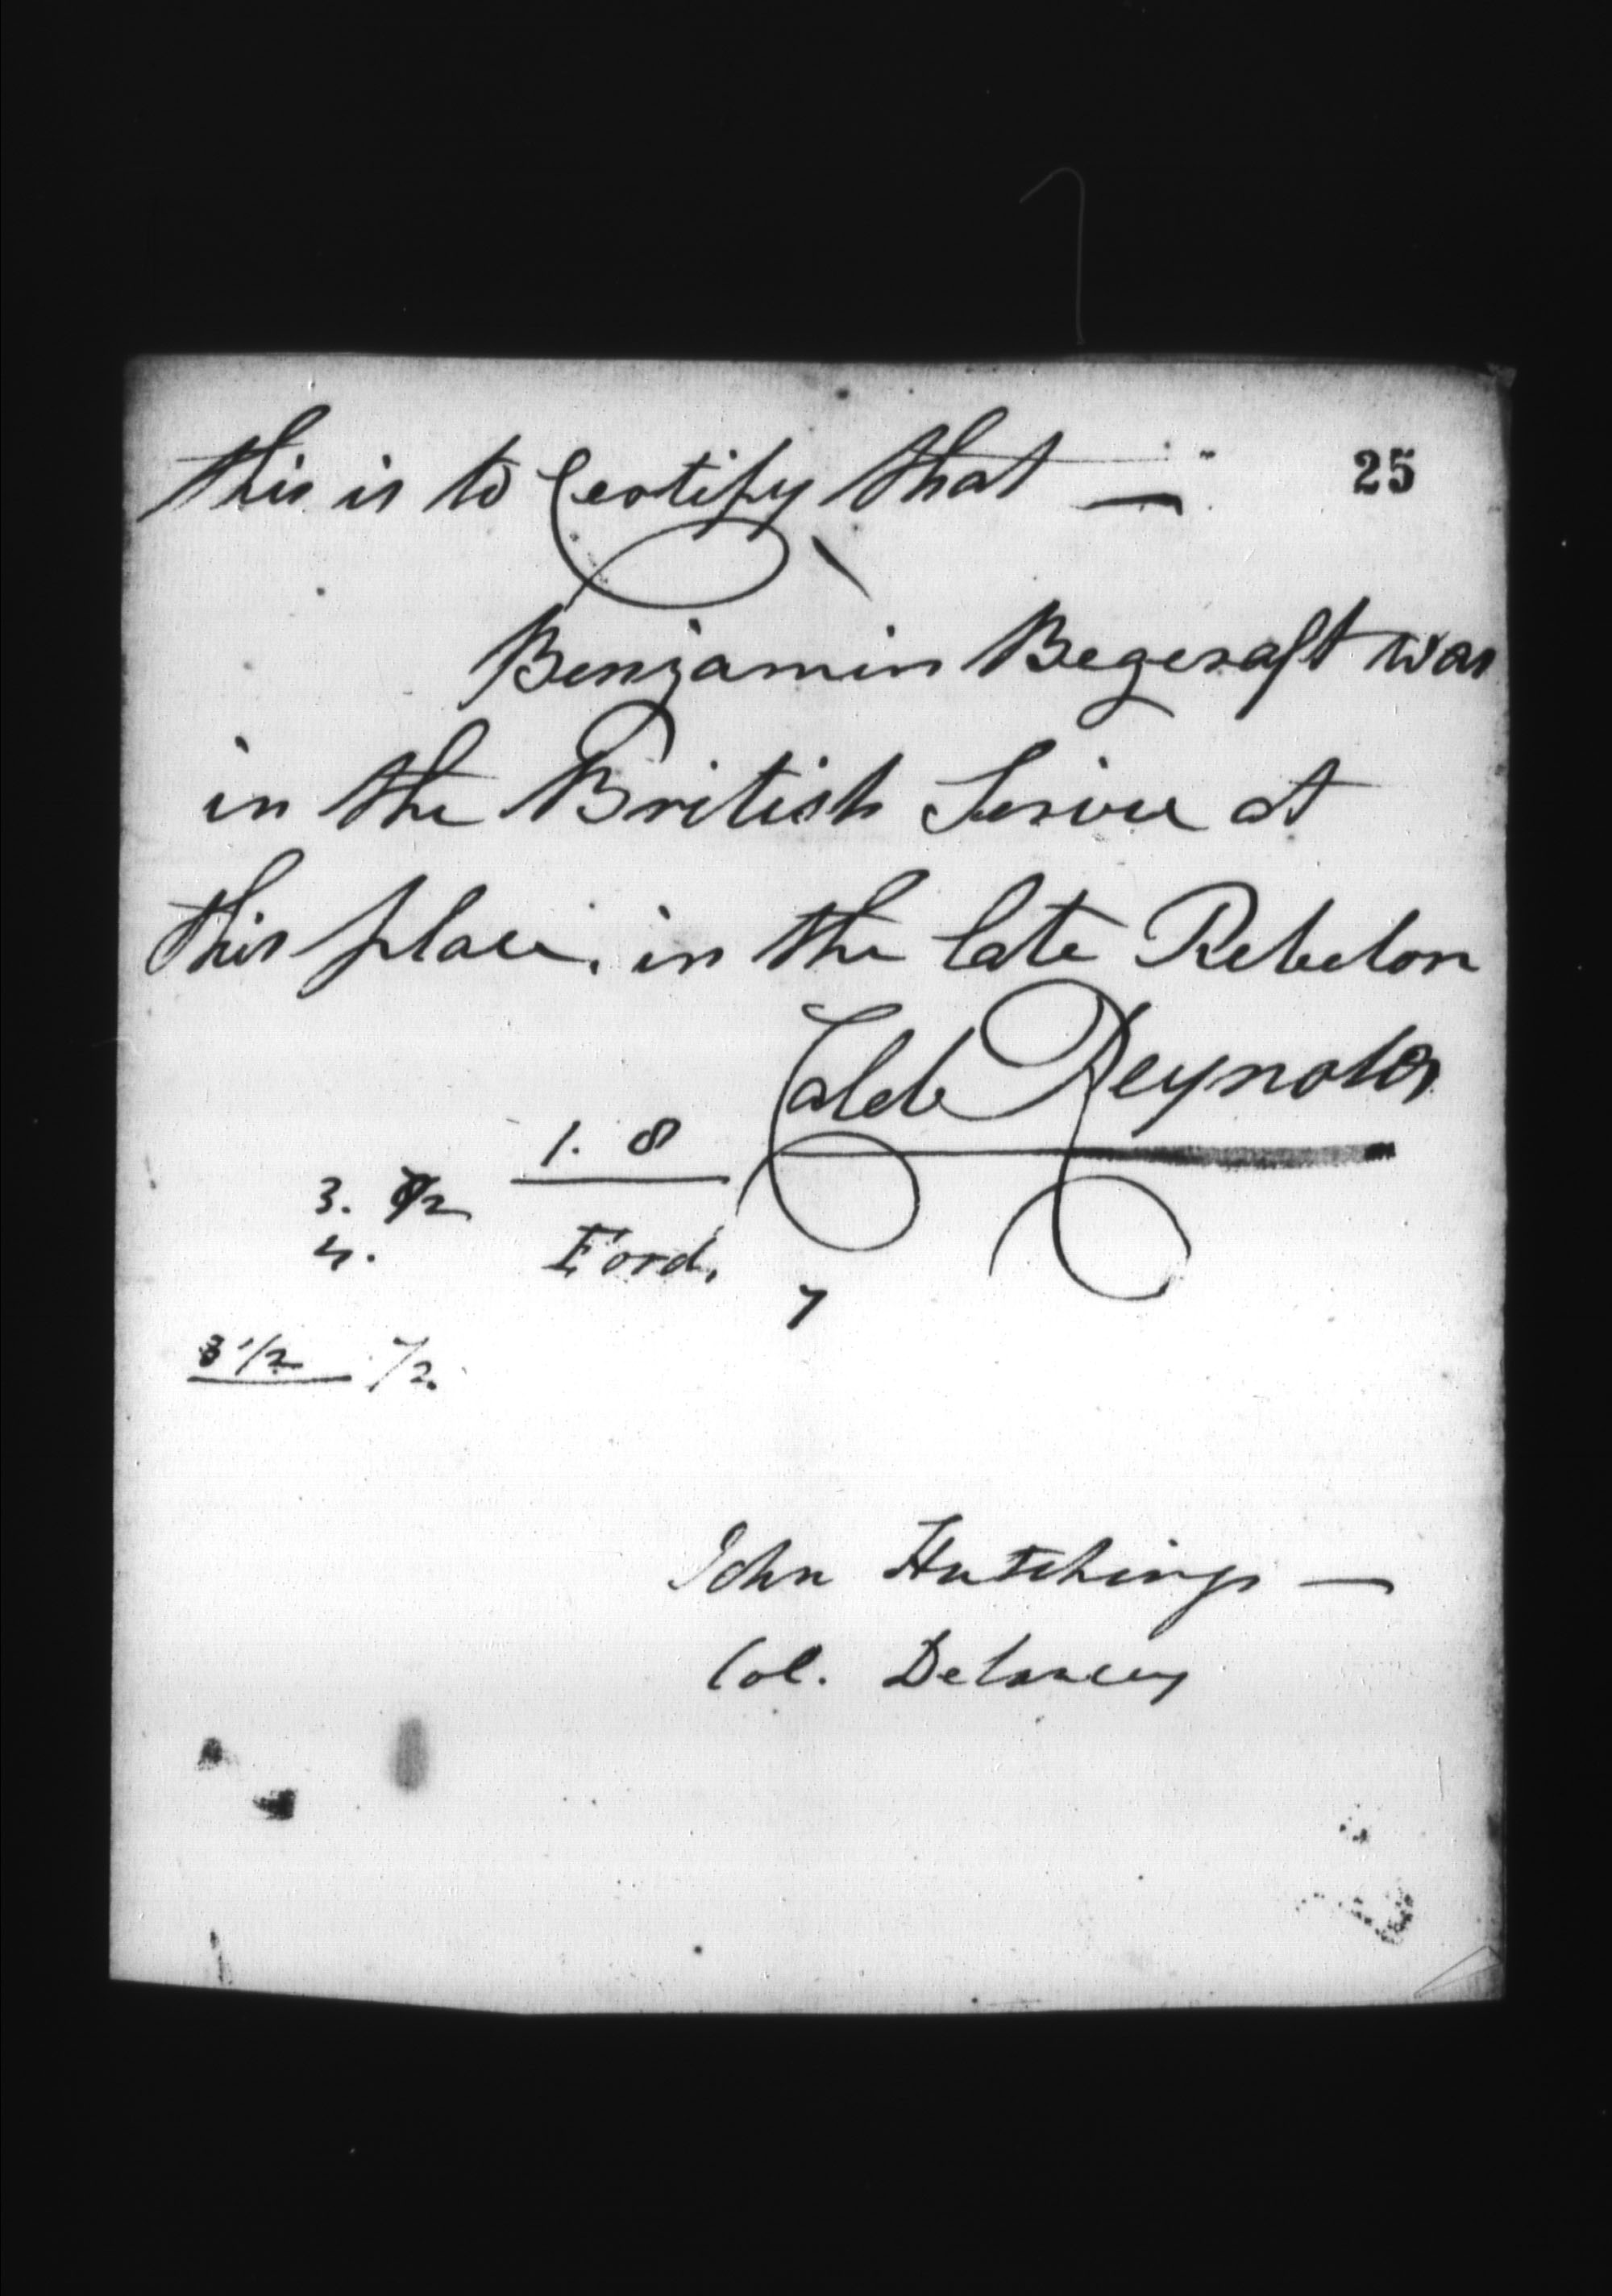 this is to Certify that — 25
Benjamin Begeraft was
in the British Servie at
this place. in the late Rebelon
Caleb Reynolds
1. 8
3. 1/2
4.
Ford,
7
3 1/2 7/2.
John Hutchings —
Col. Delancey